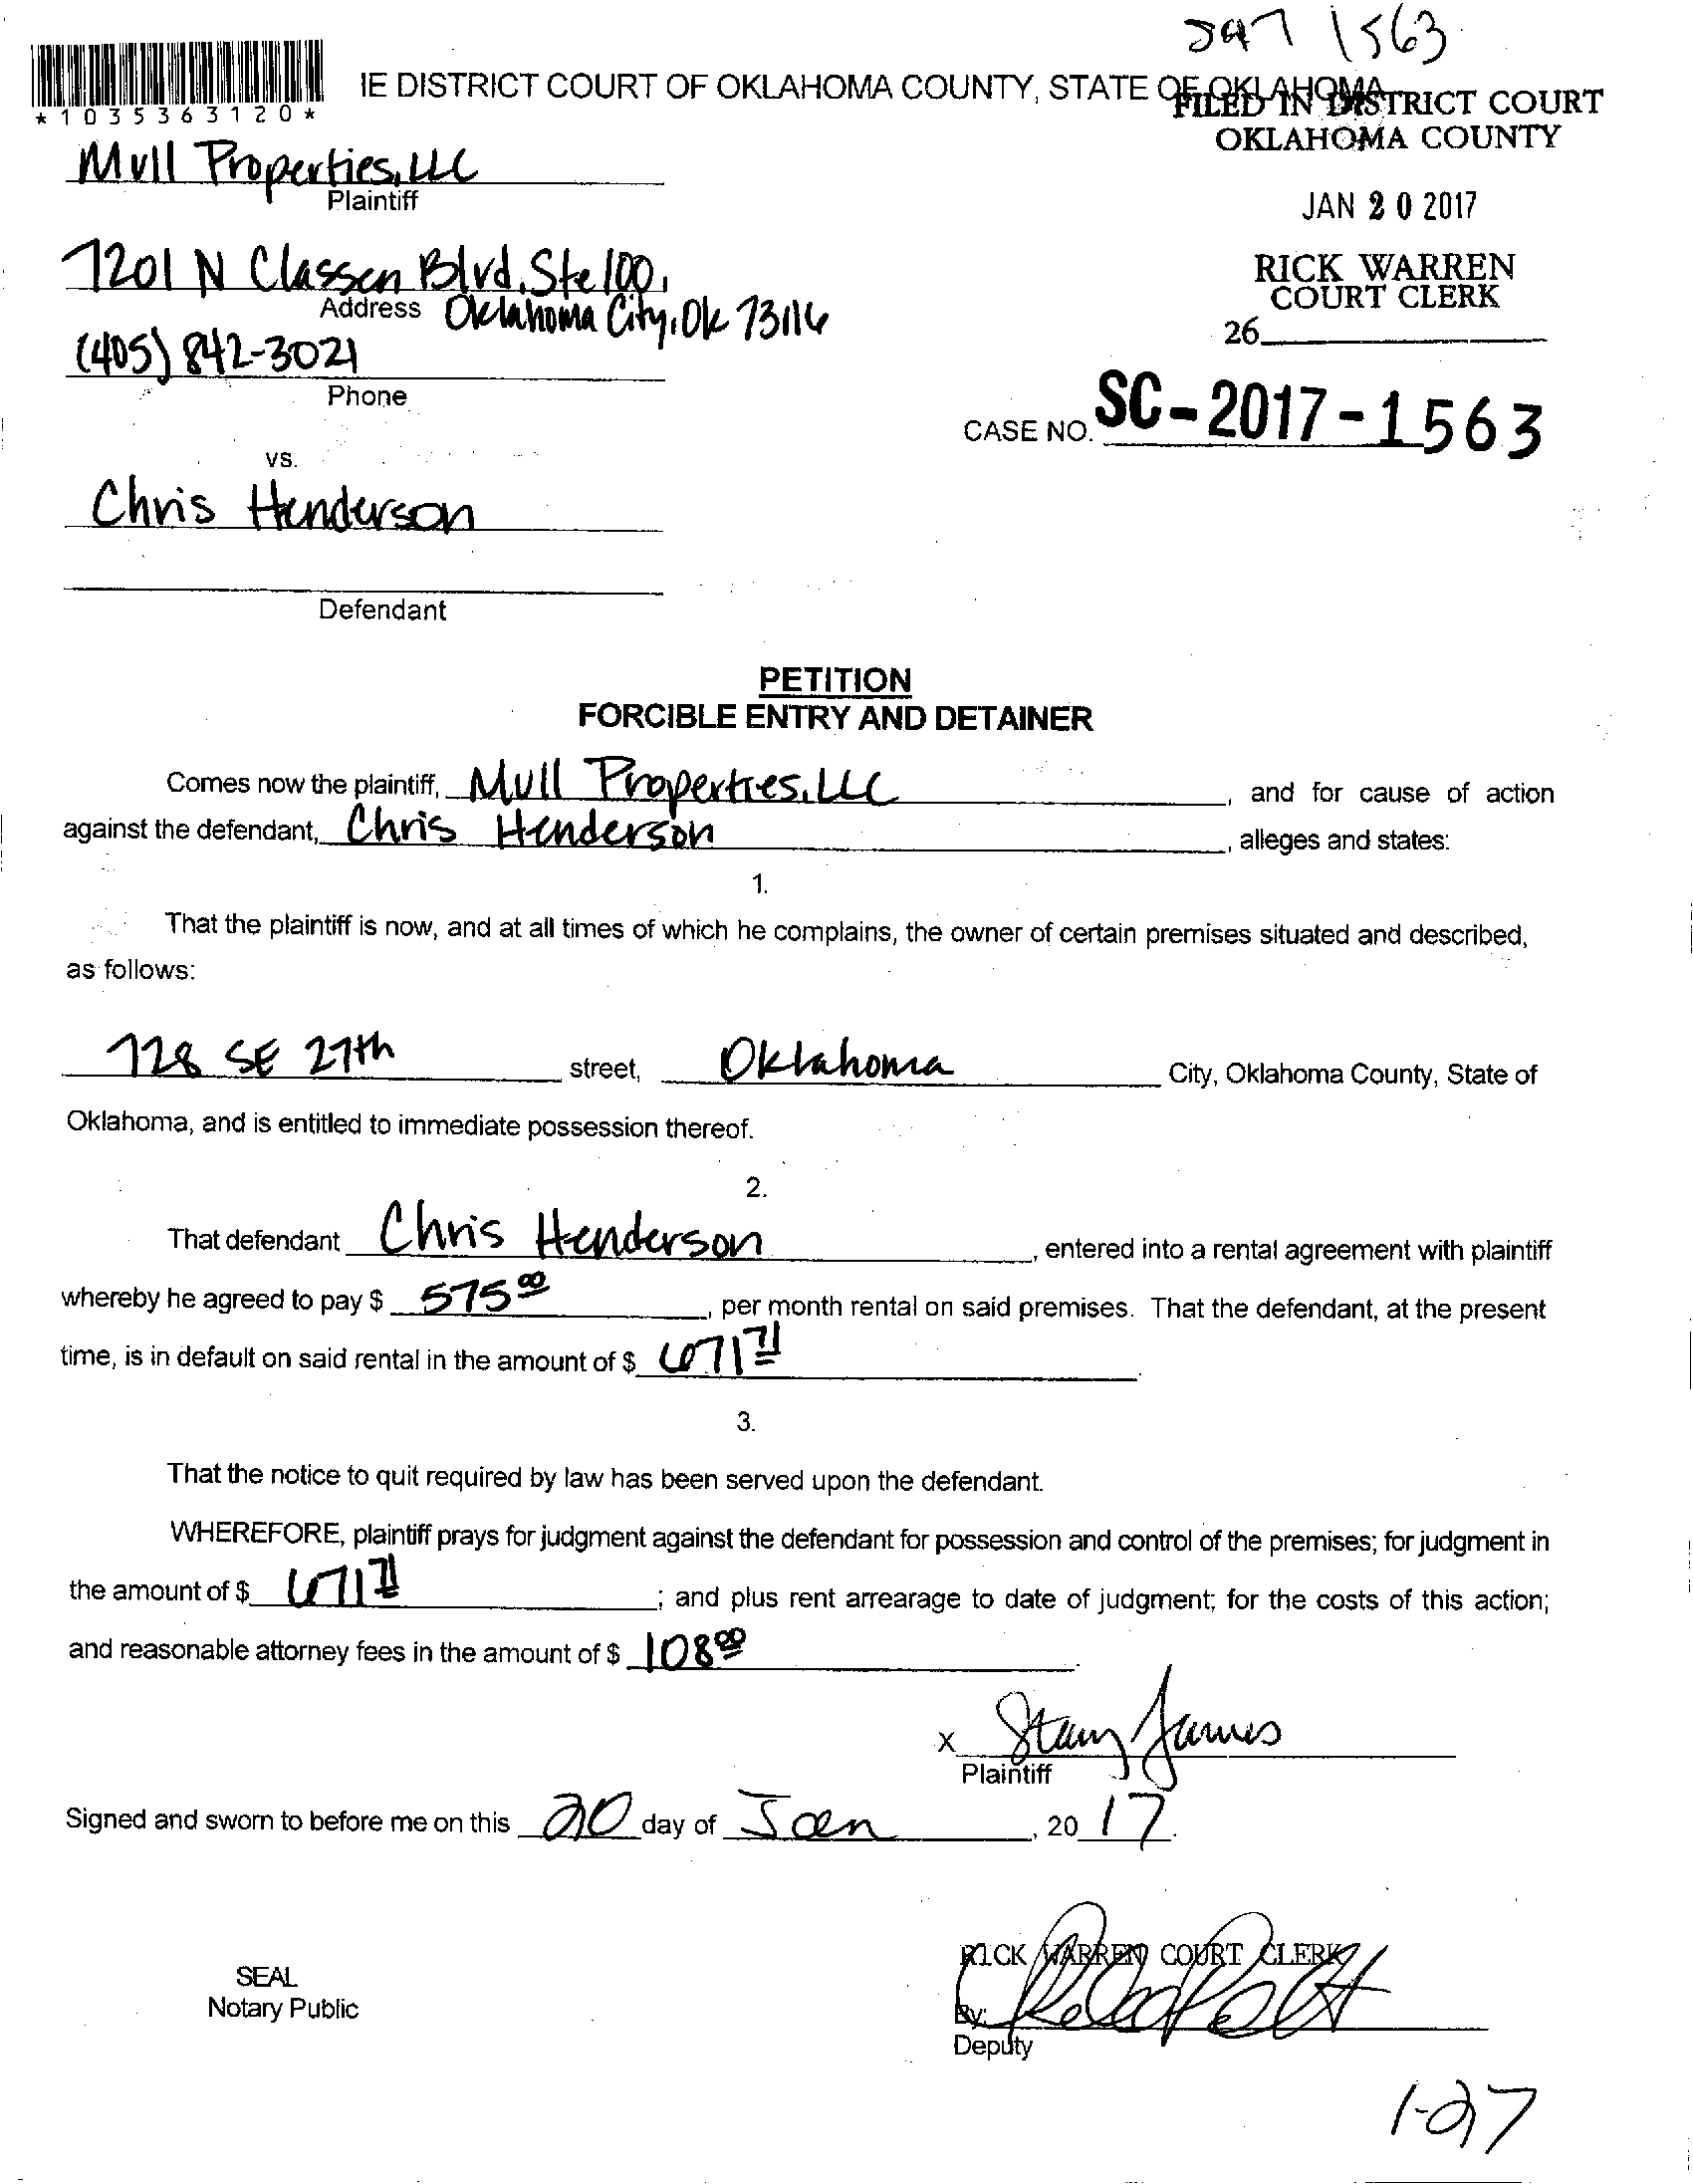 1563
IE DISTRICT COURT OF OKLAHOMA COUNTY, STATE OF OKLAHOMA
*1035363120*
FILED IN DISTRICT COURT
OKLAHOMA COUNTY
JAN 20 2017
RICK WARREN
COURT CLERK
26
Mull Properties, LLC
Plaintiff
7201 N Classen Blvd, Ste 100,
Address Oklahoma City, Ok 73116
(405) 842-3021
Phone
CASE NO. SC-2017-1563
vs.
Chris Henderson
Defendant
PETITION
FORCIBLE ENTRY AND DETAINER
Comes now the plaintiff, Mull Properties, LLC, and for cause of action
against the defendant, Chris Henderson, alleges and states:
1.
That the plaintiff is now, and at all times of which he complains, the owner of certain premises situated and described,
as follows:
728 SE 27th street, Oklahoma City, Oklahoma County, State of
Oklahoma, and is entitled to immediate possession thereof.
2.
That defendant Chris Henderson, entered into a rental agreement with plaintiff
whereby he agreed to pay $ 575 00, per month rental on said premises. That the defendant, at the present
time, is in default on said rental in the amount of $ 671 71.
3.
That the notice to quit required by law has been served upon the defendant.
WHEREFORE, plaintiff prays for judgment against the defendant for possession and control of the premises; for judgment in
the amount of $ 671 71; and plus rent arrearage to date of judgment; for the costs of this action;
and reasonable attorney fees in the amount of $ 108 00.
x James
Plaintiff
Signed and sworn to before me on this 20 day of Jan, 20 17.
SEAL
Notary Public
RICK WARREN COURT CLERK
By:
Deputy
1-27